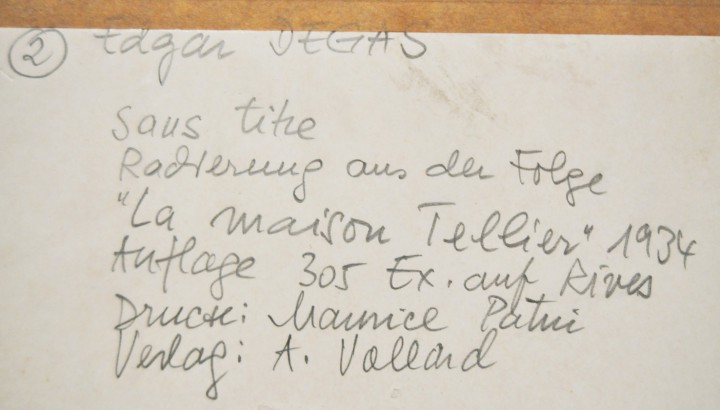 ② Edgar DEGAS
Sans titre
Radierung aus der Folge
"La maison Tellier" 1934
Auflage 305 Ex. auf Rives
Druck: Maurice Potin
Verlag: A. Vollard